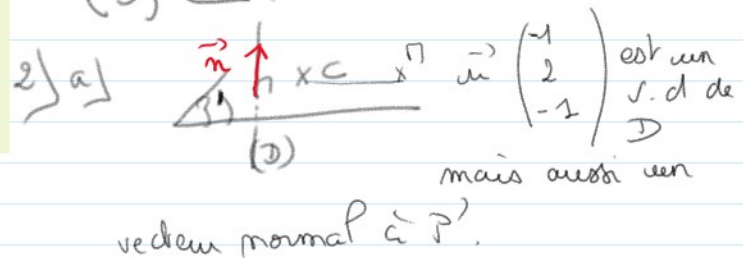 2) a) $\vec{n}$ P' × C × M $\vec{u}$ $\begin{pmatrix} -1 \\ 2 \\ -1 \end{pmatrix}$ est un
v.d de
(D) D
mais aussi un
vecteur normal à P'.